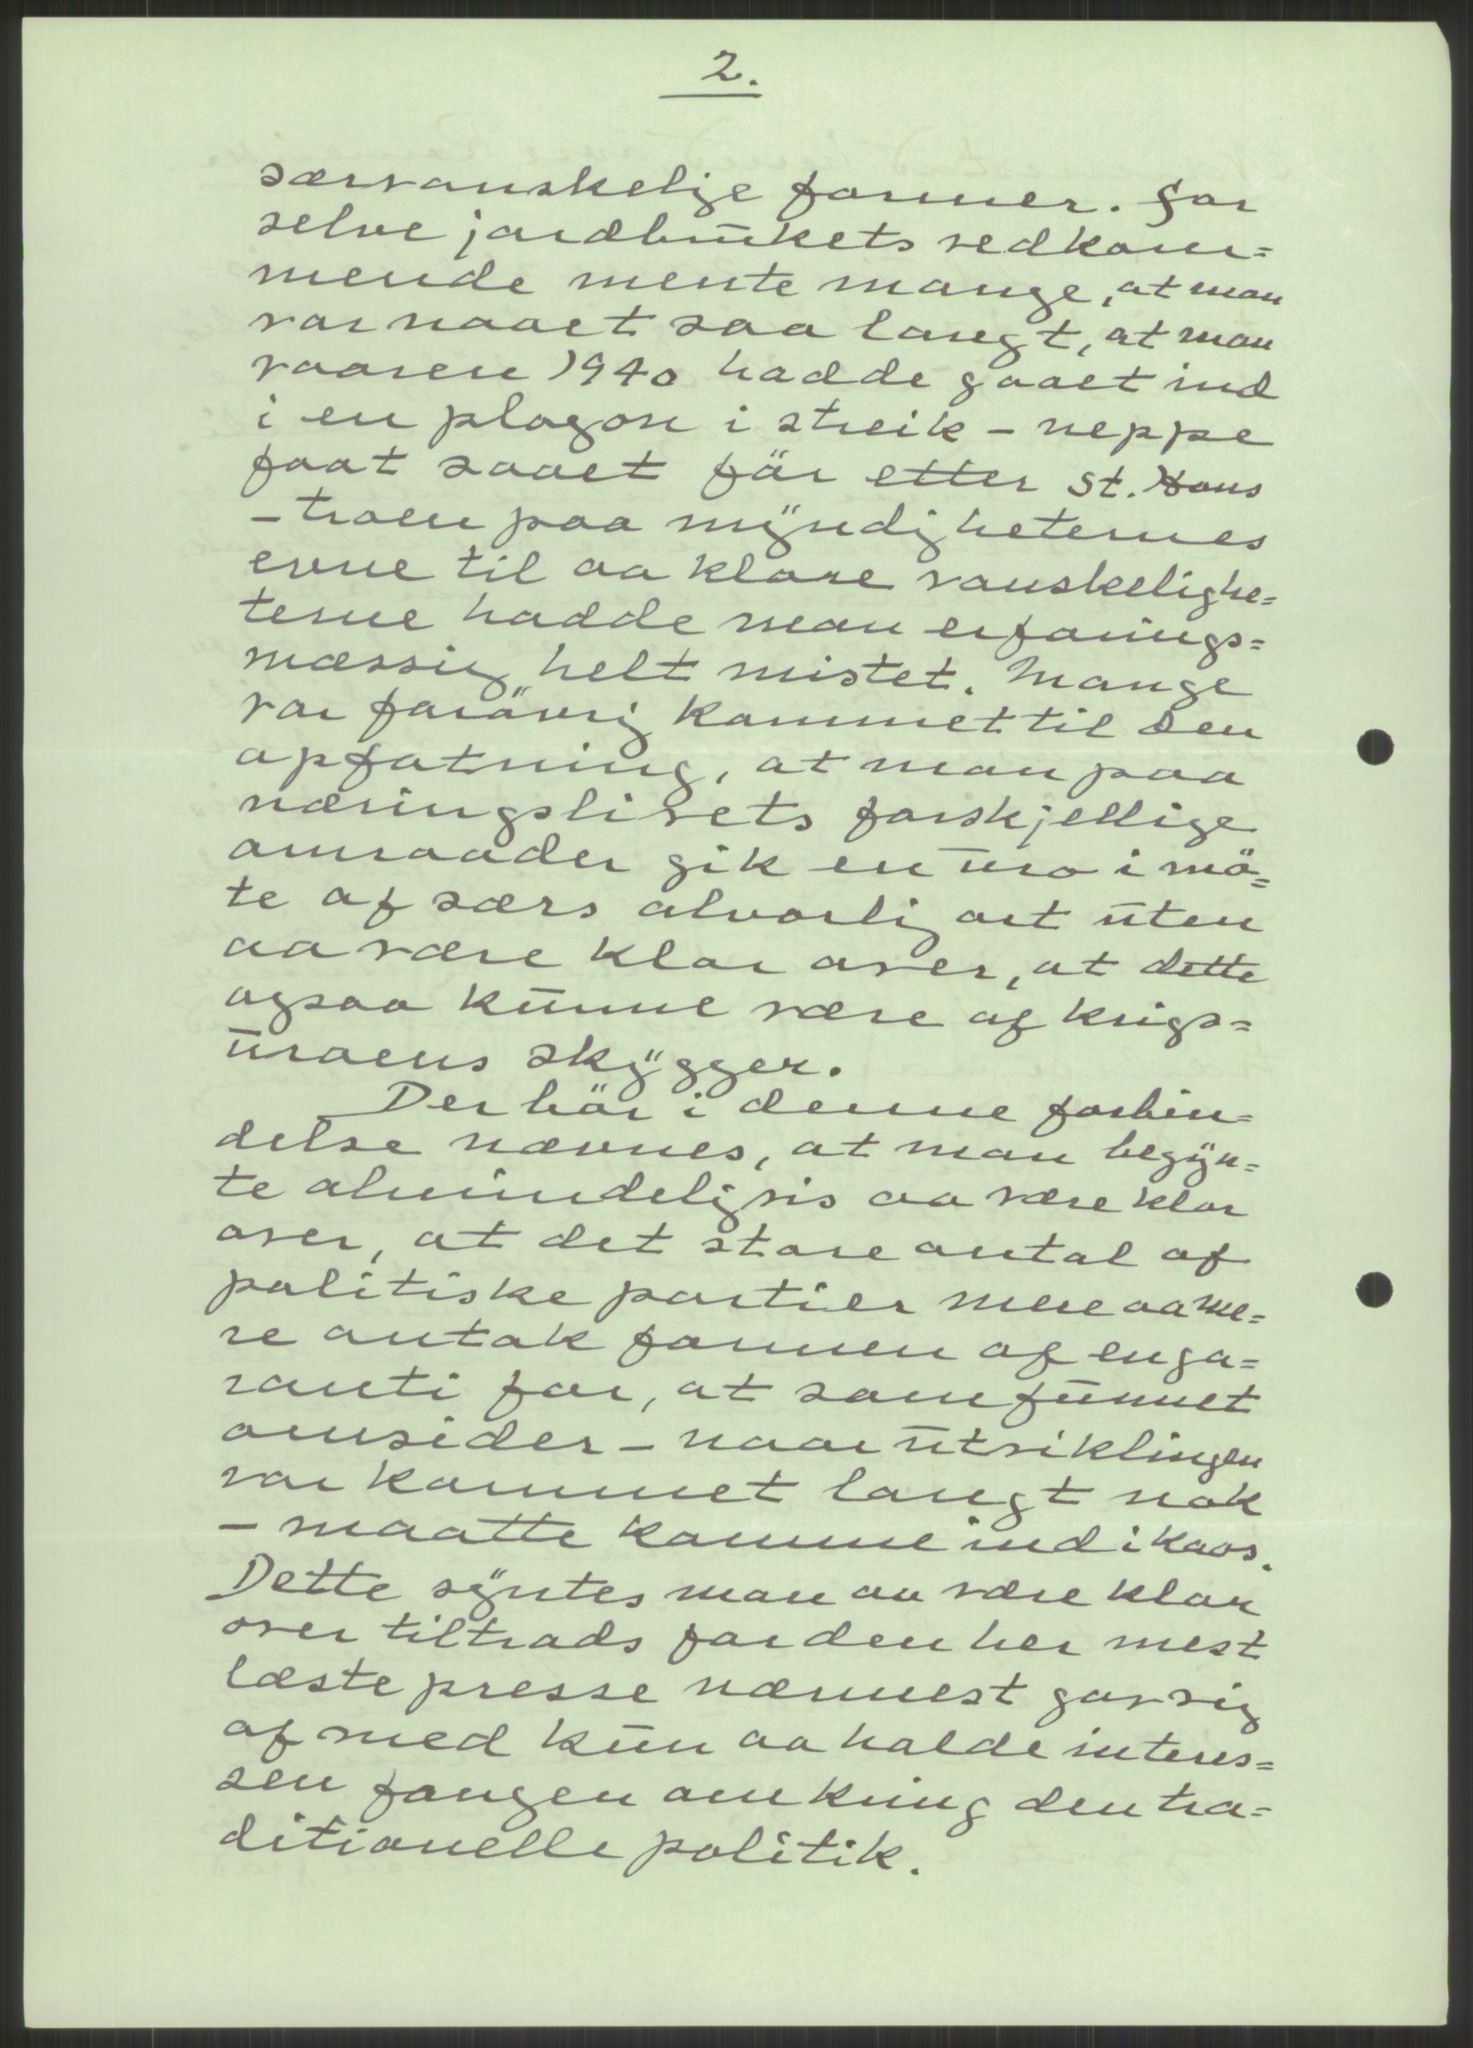 2.
særvanskelige former. For
selve jordbrukets vedkom=
mende mente mange, at man
var naaet saa langt, at man
vaaren 1940 hadde gaaet ind
i en plagon i streik - neppe
faat saaet för etter St. Hans
- troen paa myndigheternes
evne til aa klare vanskelighe=
terne hadde man erfarings=
mæssig helt mistet. Mange
var forövrig kommet til den
opfatning, at man paa
næringslivets forskjellige
omraader gik en uro i mö=
te af særs alvorlig art uten
aa være klar over, at dette
ogsaa kunne være af krigs=
uroens skygger.
Der bör i denne forbin=
delse nævnes, at man begyn=
te almindeligvis aa være klar
over, at det store antal af
politiske partier mere aa me=
re antok formen af en ga=
ranti for, at samfunnet
omsider - naar utviklingen
var kommet langt nok
- maatte komme ind i kaos.
Dette syntes man aa være klar
over tiltrods for den her mest
læste presse nærmest gav sig
af med kun aa holde interes=
sen fangen omkring den tra=
ditionelle politik.